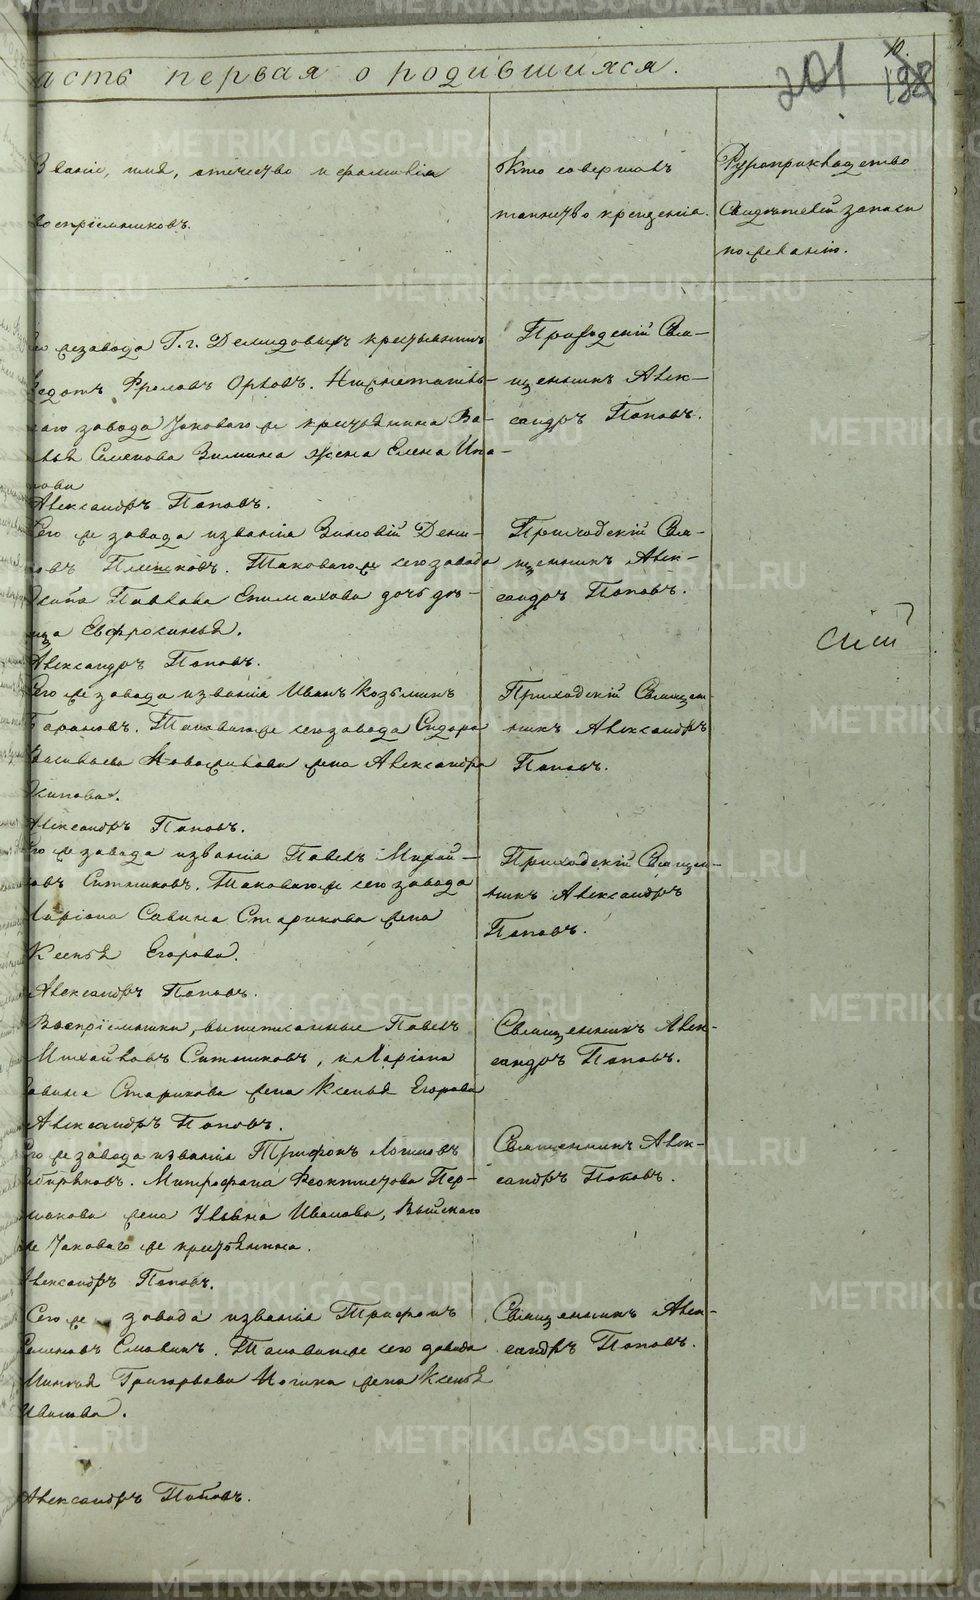 METRIKI.GASO-URAL.RU
асть первая о родившихся.
10.
201
198
Званіе, имя, отечество и фамилія
воспріемниковъ.
Кто совершалъ
таинство крещенія.
Рукоприкладство
свидѣтелей записи
по желанію.
же завода Г.г. Демидовыхъ крестьянинъ
Федотъ Фроловъ Орловъ. Нижнетагиль-
скаго завода таковаго же крестьянина Ва-
Семенова Зимина жена Елена
Александръ Поповъ.
Приходскій Свя-
щенникъ Алек-
сандръ Поповъ.
Сего же завода и званія Зиновій
Таковаго же сего завода
Павлова Епимахова дочь дѣ-
вица Евфросинья.
Александръ Поповъ.
Приходскій Свя-
щенникъ Алек-
сандръ Поповъ.
Сего же завода и званія Иванъ Козьминъ
Барановъ. Таковаго же сего завода Сидора
Васильева жена Александра
Осипова.
Александръ Поповъ.
Приходскій Священ-
никъ Александръ
Поповъ.
Сего же завода и званія Павелъ Михай-
ловъ Ситниковъ. Таковаго же сего завода
Маріана Савина Старикова жена
Ксенья Егорова.
Александръ Поповъ.
Приходскій Священ-
никъ Александръ
Поповъ.
Воспріемники, вышеписанные Павелъ
Михайловъ Ситниковъ, и Маріана
Савина Старикова жена Ксенья Егорова
Александръ Поповъ.
Священникъ Алек-
сандръ Поповъ.
Сего же завода и званія Трифонъ Логиновъ
Митрофана Феоктистова Пер-
жена Ульяна Иванова, Выйскаго
же таковаго же крестьянина.
Александръ Поповъ.
Священникъ Алек-
сандръ Поповъ.
Сего же завода и званія Трифонъ
Семеновъ Таковаго же сего завода
Григорьева жена Ксенья
Иванова.
Александръ Поповъ.
Священникъ Алек-
сандръ Поповъ.